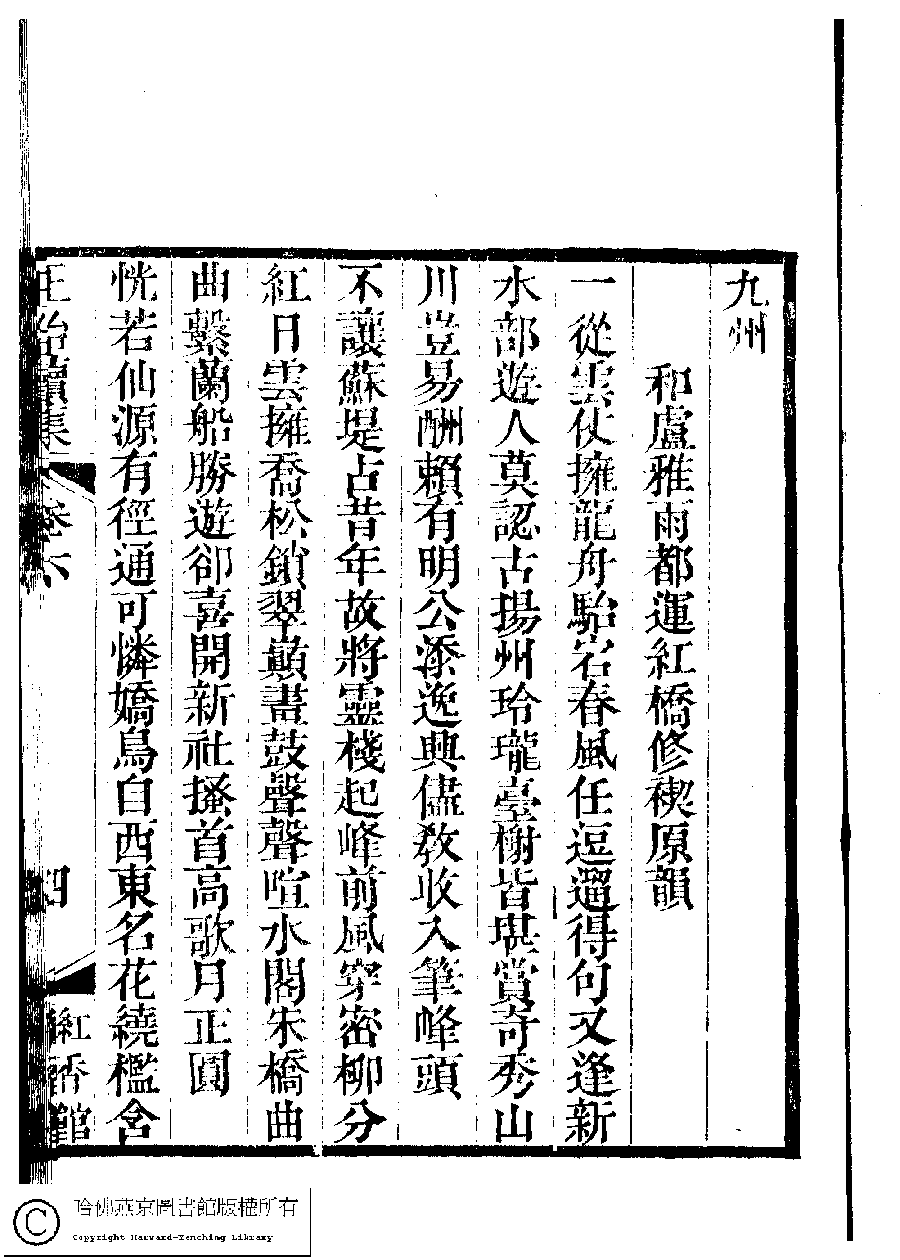 九州
和盧雅雨都運紅橋修禊原韻
一從雲仗擁龍舟駘宕春風任逗遛得句又逢新
水部遊人莫認古揚州玲瓏臺榭皆堪賞奇秀山
川豈易酬賴有明公添逸興儘教收入筆峰頭
不讓蘇堤占昔年故將靈棧起峰前風穿密柳分
紅日雲擁喬松鎖翠巔畫鼓聲聲喧水閣朱橋曲
曲繫蘭船勝遊卻喜開新社搔首高歌月正圓
恍若仙源有徑通可憐嬌鳥自西東名花繞檻含
續集
卷六
四
紅香館
哈佛燕京圖書館版權所有
Copyright Harvard-Yenching Library